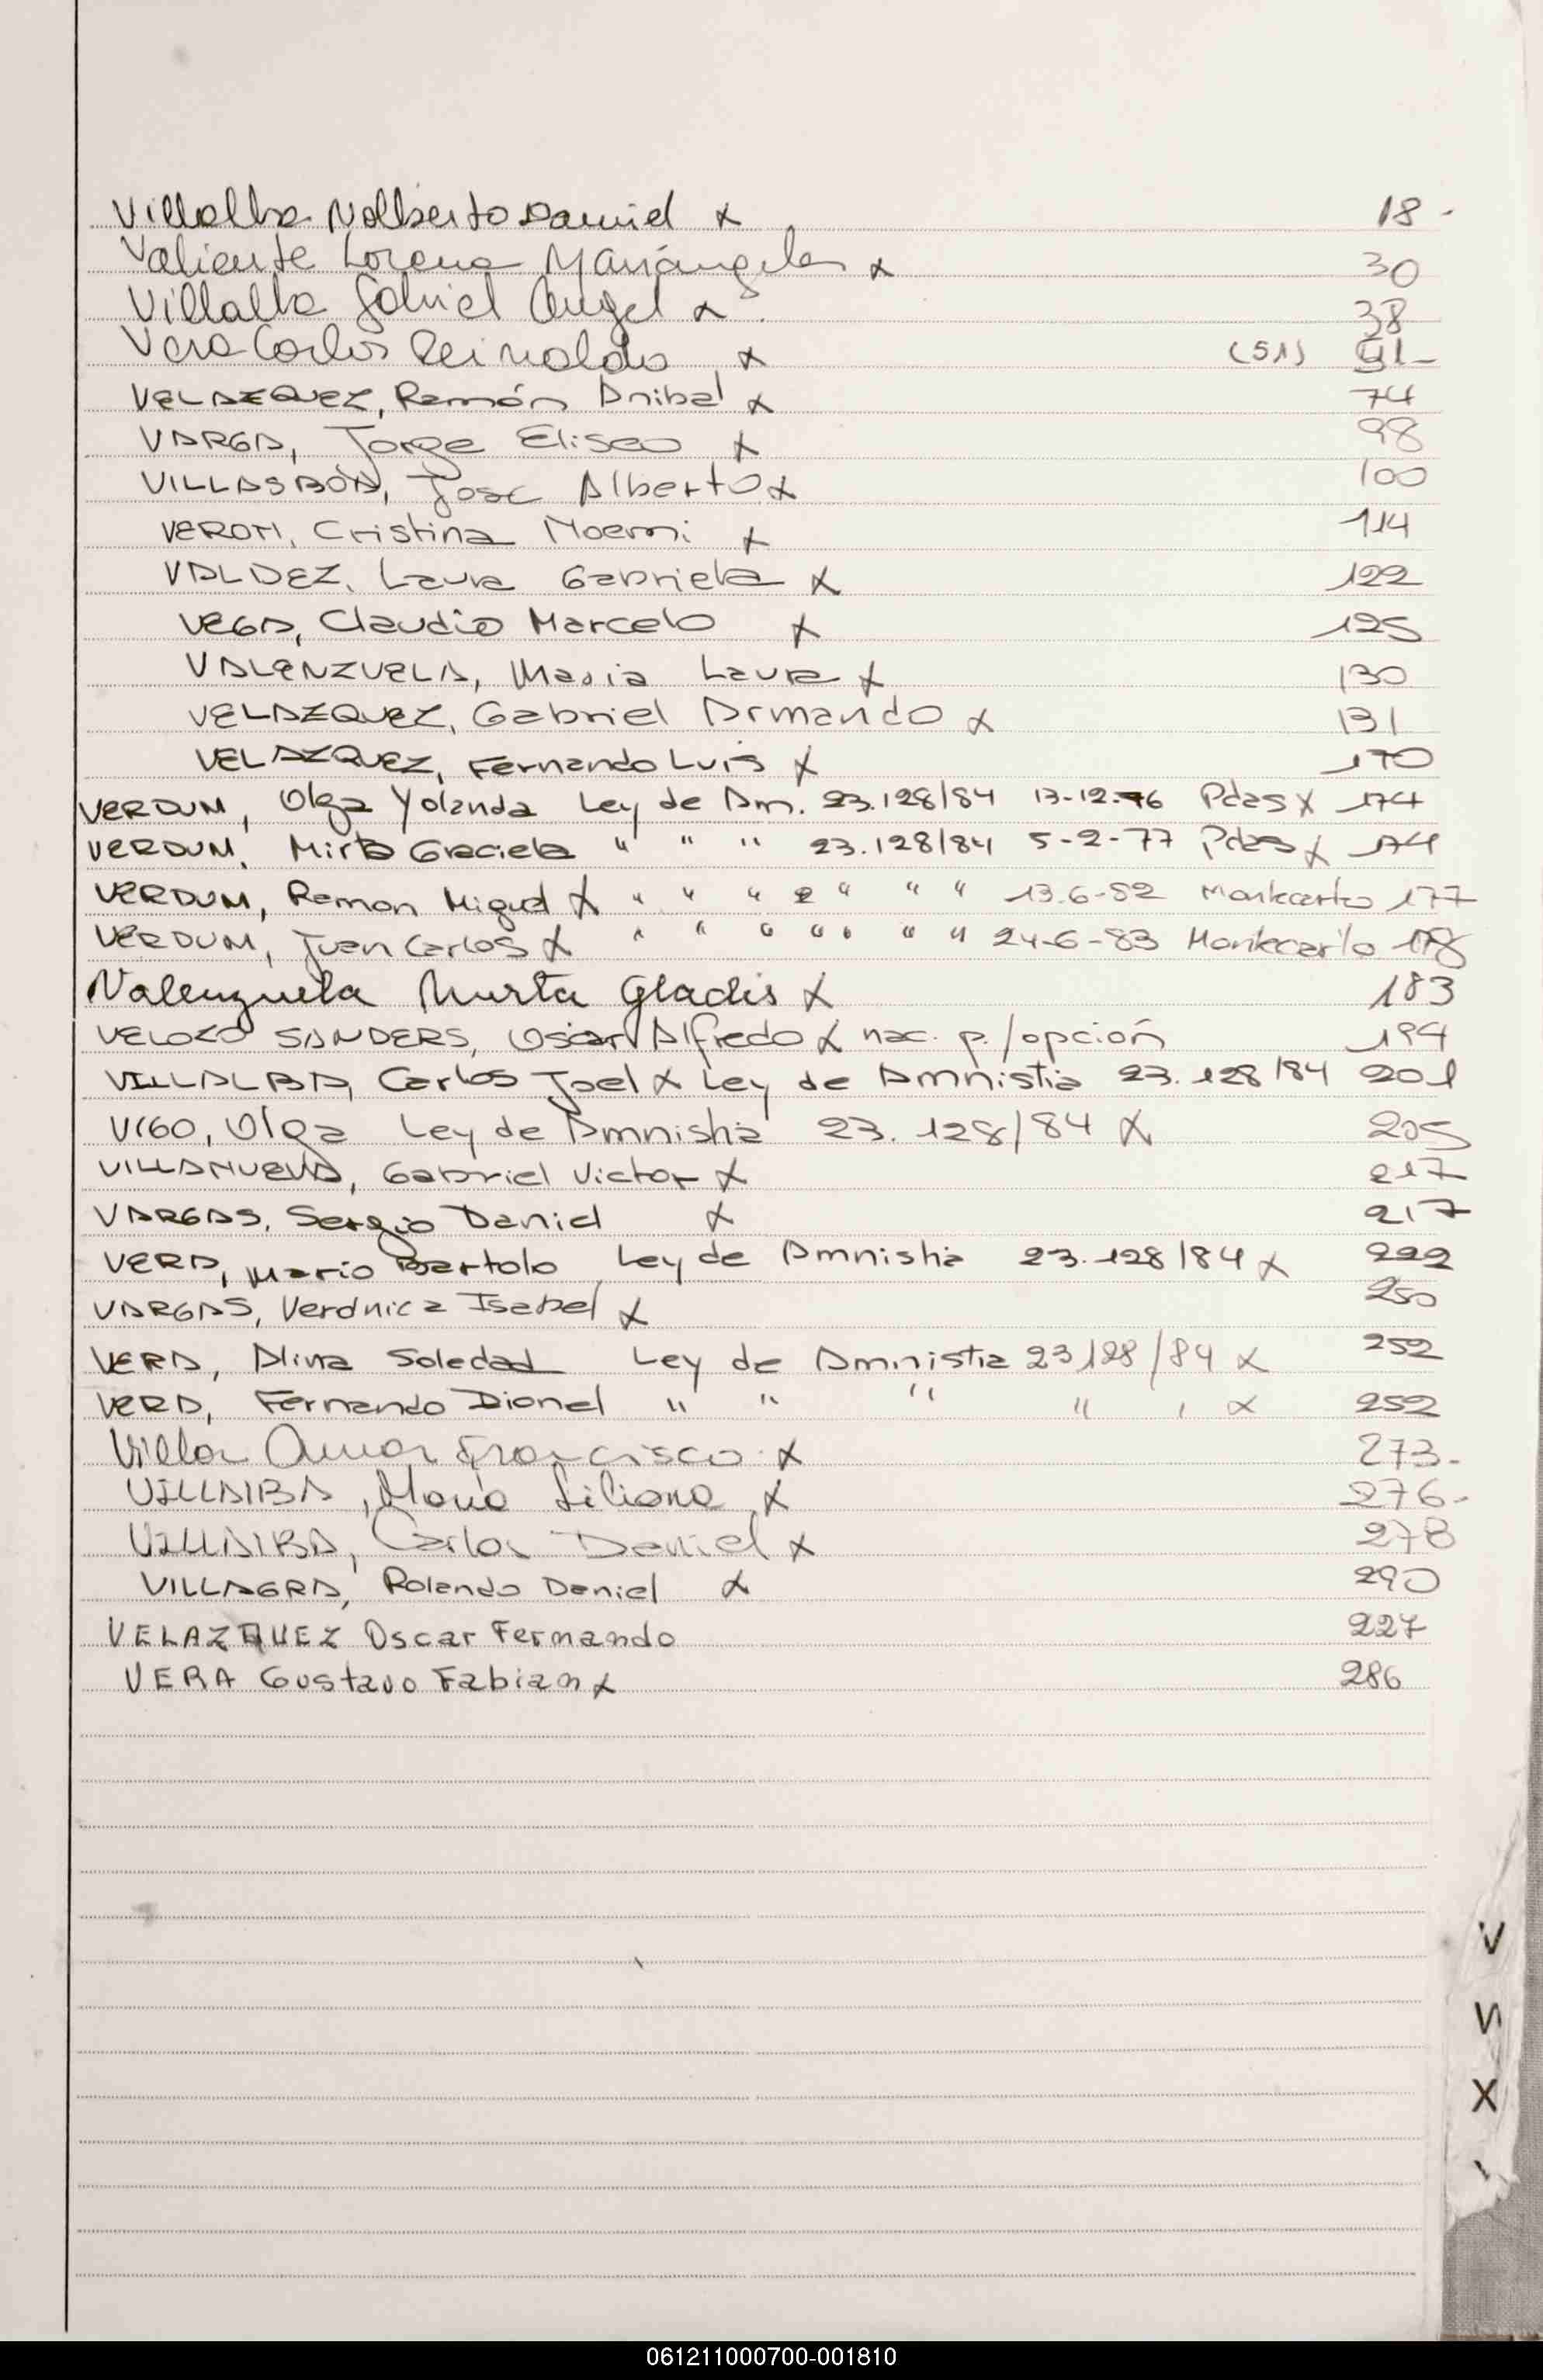 Villalba Nolberto Daniel x 18 -
Valiente Lorena Mariángeles x 30
Villalba Gabriel Angel x 38
Vera Carlos Reinaldo x (51) 51-
VELAZQUEZ, Ramón Anibal x 74
VARGA, Jorge Eliseo x 98
VILLASBOA, José Alberto x 100
VEROTI, Cristina Noemi x 114
VALDEZ, Laura Gabriela x 122
VEGA, Claudio Marcelo x 125
VALENZUELA, Maria Laura x 130
VELAZQUEZ, Gabriel Armando x 131
VELAZQUEZ, Fernando Luis x 170
VERDUM, Olga Yolanda Ley de Am. 23.128/84 13-12-76 Pdas x 174
VERDUM, Mirta Graciela " " " 23.128/84 5-2-77 Pdas x 174
VERDUM, Ramon Miguel x " " " " " " 13-6-82 Montecarlo 177
VERDUM, Juan Carlos x " " " " " " 24-6-83 Montecarlo 178
Valenzuela Mirta Gladis x 183
VELOZO SANDERS, Oscar Alfredo x nac. p./opción 194
VILLALBA, Carlos Joel x Ley de Amnistia 23.128/84 201
VIGO, Olga Ley de Amnistia 23.128/84 x 205
VILLANUEVA, Gabriel Victor x 217
VARGAS, Sergio Daniel x 217
VERA, Mario Bartolo Ley de Amnistia 23.128/84 x 222
VARGAS, Verónica Isabel x 250
VERA, Alina Soledad Ley de Amnistia 23128/84 x 252
VERA, Fernando Dionel " " " " x 252
Villar Omar Francisco x 273-
VILLALBA, María Liliana x 276-
VILLALBA, Carlos Daniel x 278
VILLAGRA, Rolando Daniel x 290
VELAZQUEZ Oscar Fernando 227
VERA Gustavo Fabian x 286
V
X
061211000700-001810